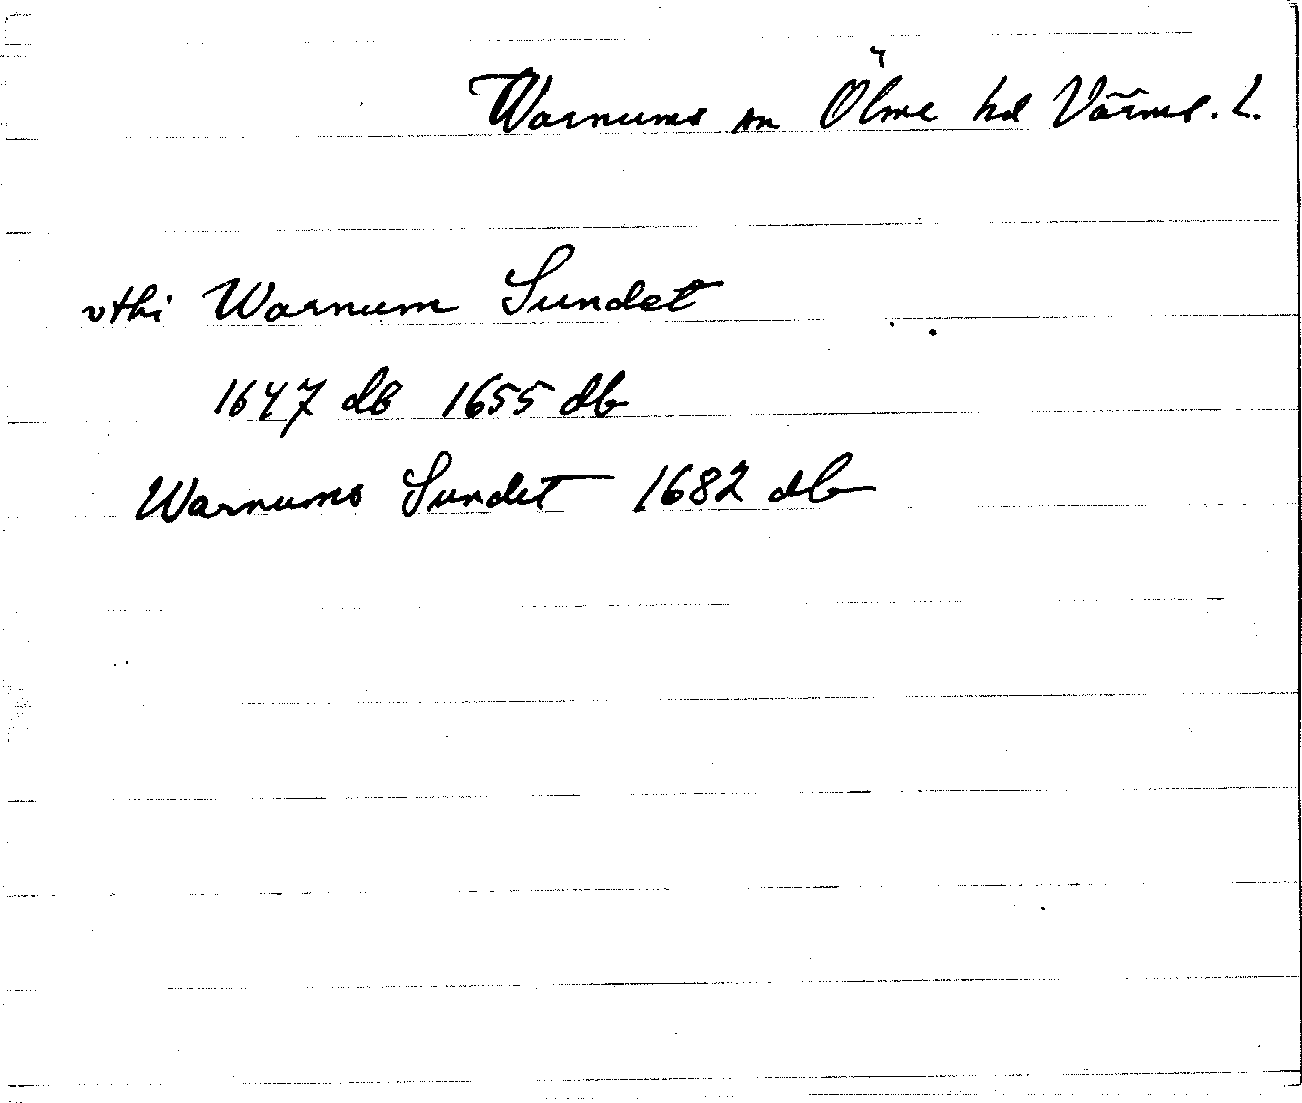 Warnums sn Ölme hd Värml. L.
vthi Warnum Sundet
1647 db 1655 db
Warnums Sundet 1682 db